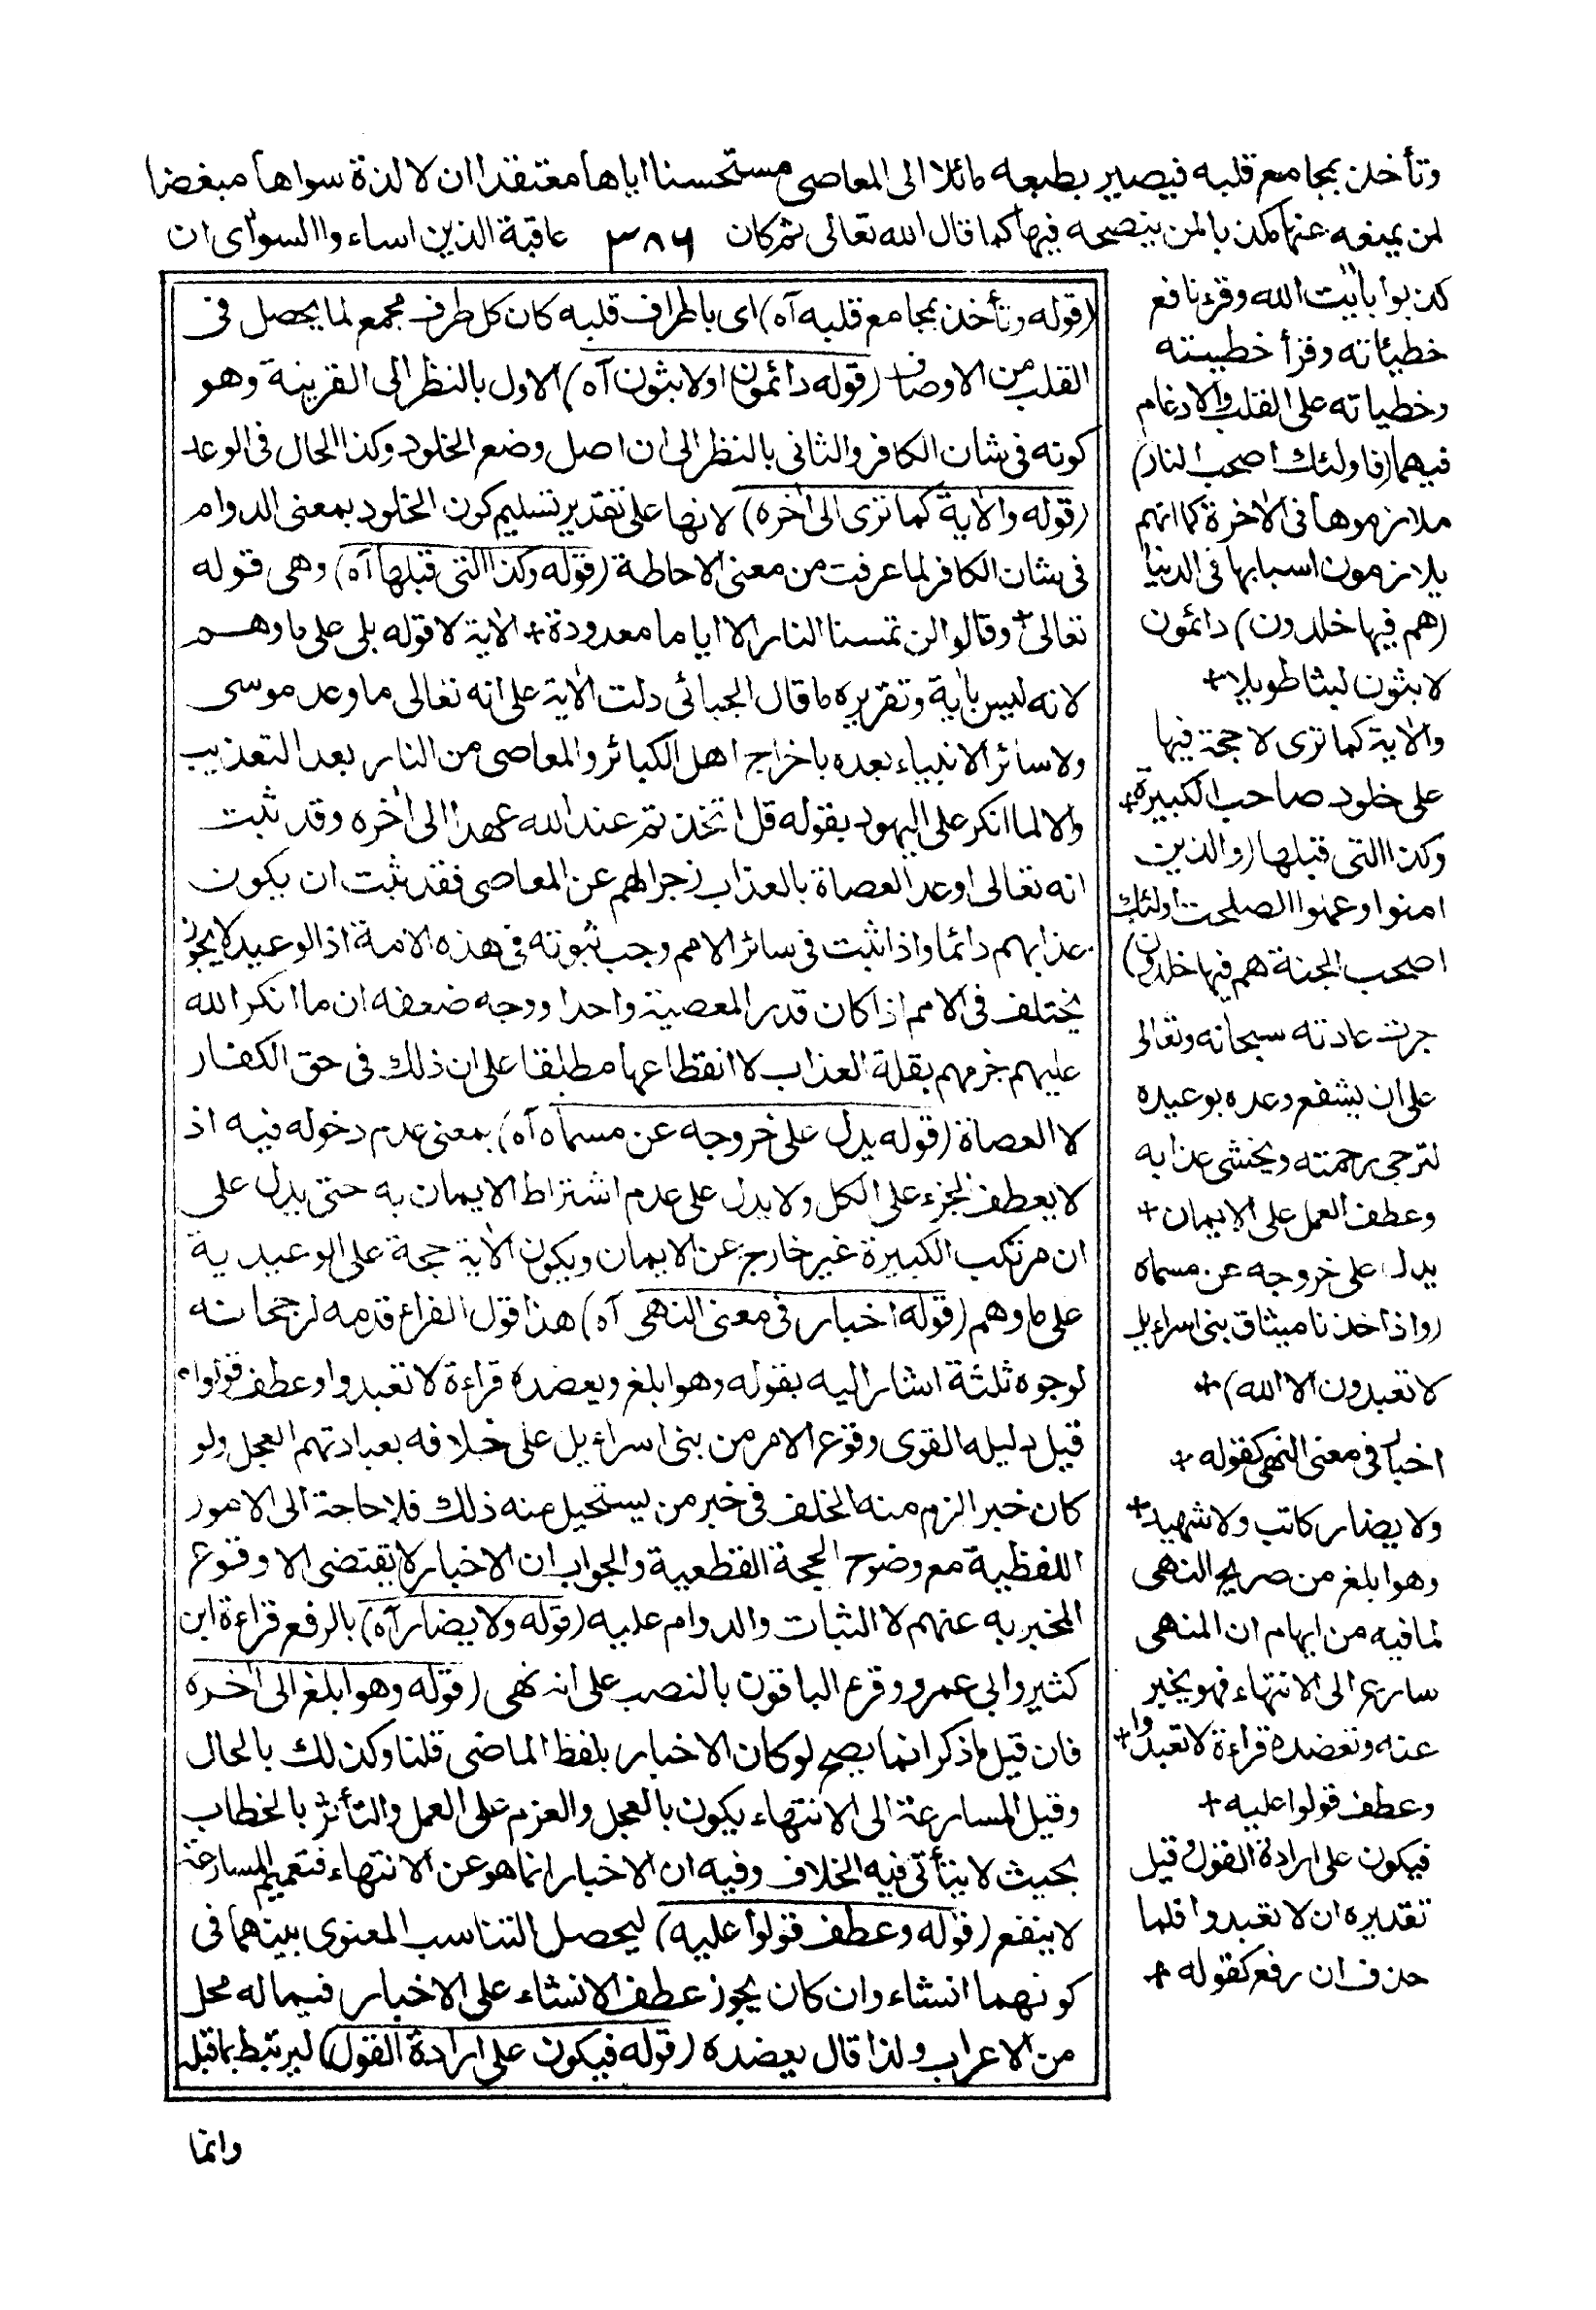 وتأخذ بمجامع قلبه فيصير بطبعه مائلا الى المعاصى مستحسنا اياها معتقدا ان لا لذة سواها مبغضا
لمن يمنعه عنها مكذبا لمن ينصحه فيها كما قال الله تعالى ثم كان ٣٨٦ عاقبة الذين اساءوا السوآى ان
كذبوا بأيت الله وقرء نافع
خطيئاته وقرأ خطيته
وخطياته على القلب والادغام
فيهما (فاولئك اصحب النار)
ملازموها فى الاخرة كما انهم
يلازمون اسبابها فى الدنيا
(هم فيها خلدون) دائمون
لابثون لبثا طويلا +
والاية كما ترى لا حجة فيها
على خلود صاحب الكبيرة +
وكذا التى قبلها (والذين
امنوا وعملوا الصلحت اولئك
اصحب الجنة هم فيها خلدون)
جرت عادته سبحانه وتعالى
على ان يشفع وعده بوعيده
لترجى رحمته ويخشى عذابه
وعطف العمل على الايمان +
يدل على خروجه عن مسماه
(واذ اخذنا ميثاق بنى اسراءيل
لا تعبدون الا الله) +
اخبار فى معنى النهى كقوله +
ولا يضار كاتب ولا شهيد +
وهو ابلغ من صريح النهى
لما فيه من ايهام ان المنهى
سارع الى الانتهاء فهو يخبر
عنه وتعضده قراءة لا تعبدوا +
وعطف قولوا عليه +
فيكون على ارادة القول وقيل
تقديره ان لا تعبدوا فلما
حذف ان رفع كقوله +
(قوله وتأخذ بمجامع قلبه آه) اى باطراف قلبه كان كل طرف مجمع لما يحصل فى
القلب من الاوصاف (قوله دائمون او لابثون آه) الاول بالنظر الى القرينة وهو
كونه فى شان الكافر والثانى بالنظر الى ان اصل وضع الخلود وكذا الحال فى الوعد
(قوله والاية كما ترى الى اخره) لانها على تقدير تسليم كون الخلود بمعنى الدوام
فى شان الكافر لما عرفت من معنى الاحاطة (قوله وكذا التى قبلها آه) وهى قوله
تعالى + وقالوا لن تمسنا النار الا اياما معدودة + الاية لا قوله بلى على ما وهم
لانه ليس بأية وتقريره ما قال الجبائى دلت الاية على انه تعالى ما وعد موسى
ولا سائر الانبياء بعده باخراج اهل الكبائر والمعاصى من النار بعد التعذيب
والا لما انكر على اليهود بقوله قل اتخذتم عند الله عهدا الى اخره وقد ثبت
انه تعالى اوعد العصاة بالعذاب زجرا لهم عن المعاصى فقد ثبت ان يكون
عذابهم دائما واذا ثبت فى سائر الامم وجب ثبوته فى هذه الامة اذ الوعيد لا يجوز
يختلف فى الامم اذا كان قدر المعصية واحدا ووجه ضعفه ان ما انكر الله
عليهم جزمهم بقلة العذاب لا انقطاعها مطلقا على ان ذلك فى حق الكفار
لا العصاة (قوله يدل على خروجه عن مسماه آه) بمعنى عدم دخوله فيه اذ
لا يعطف الجزء على الكل ولا يدل على عدم اشتراط الايمان به حتى يدل على
ان مرتكب الكبيرة غير خارج عن الايمان ويكون الاية حجة على الوعيدية
على ما وهم (قوله اخبار فى معنى النهى آه) هذا قول الفراء قدمه لرجحانه
لوجوه ثلثة اشار اليه بقوله وهو ابلغ ويعضده قراءة لا تعبدوا وعطف قولوا
قيل دليله القوى وقوع الامر من بنى اسراءيل على خلافه بعبادتهم العجل ولو
كان خبرا لزم منه الخلف فى خبر من يستحيل منه ذلك فلا حاجة الى الامور
اللفظية مع وضوح الحجة القطعية والجواب ان الاخبار لا يقتضى الا وقوع
المخبر به عنهم لا الثبات والدوام عليه (قوله ولا يضار آه) بالرفع قراءة ابن
كثير وابى عمرو وقرء الباقون بالنصب على انه نهى (قوله وهو ابلغ الى اخره
فان قيل ما ذكر انما يصح لو كان الاخبار بلفظ الماضى قلنا وكذلك بالحال
وقيل المسارعة الى الانتهاء يكون بالعجل والعزم على العمل والتأثر بالخطاب
بحيث لا يتأتى فيه الخلاف وفيه ان الاخبار انما هو عن الانتهاء فتعميم المسارعة
لا ينفع (قوله وعطف قولوا عليه) ليحصل التناسب المعنوى بينهما فى
كونهما انشاء وان كان يجوز عطف الانشاء على الاخبار فيما له محل
من الاعراب ولذا قال يعضده (قوله فيكون على ارادة القول) ليرتبط بما قبله
وانما